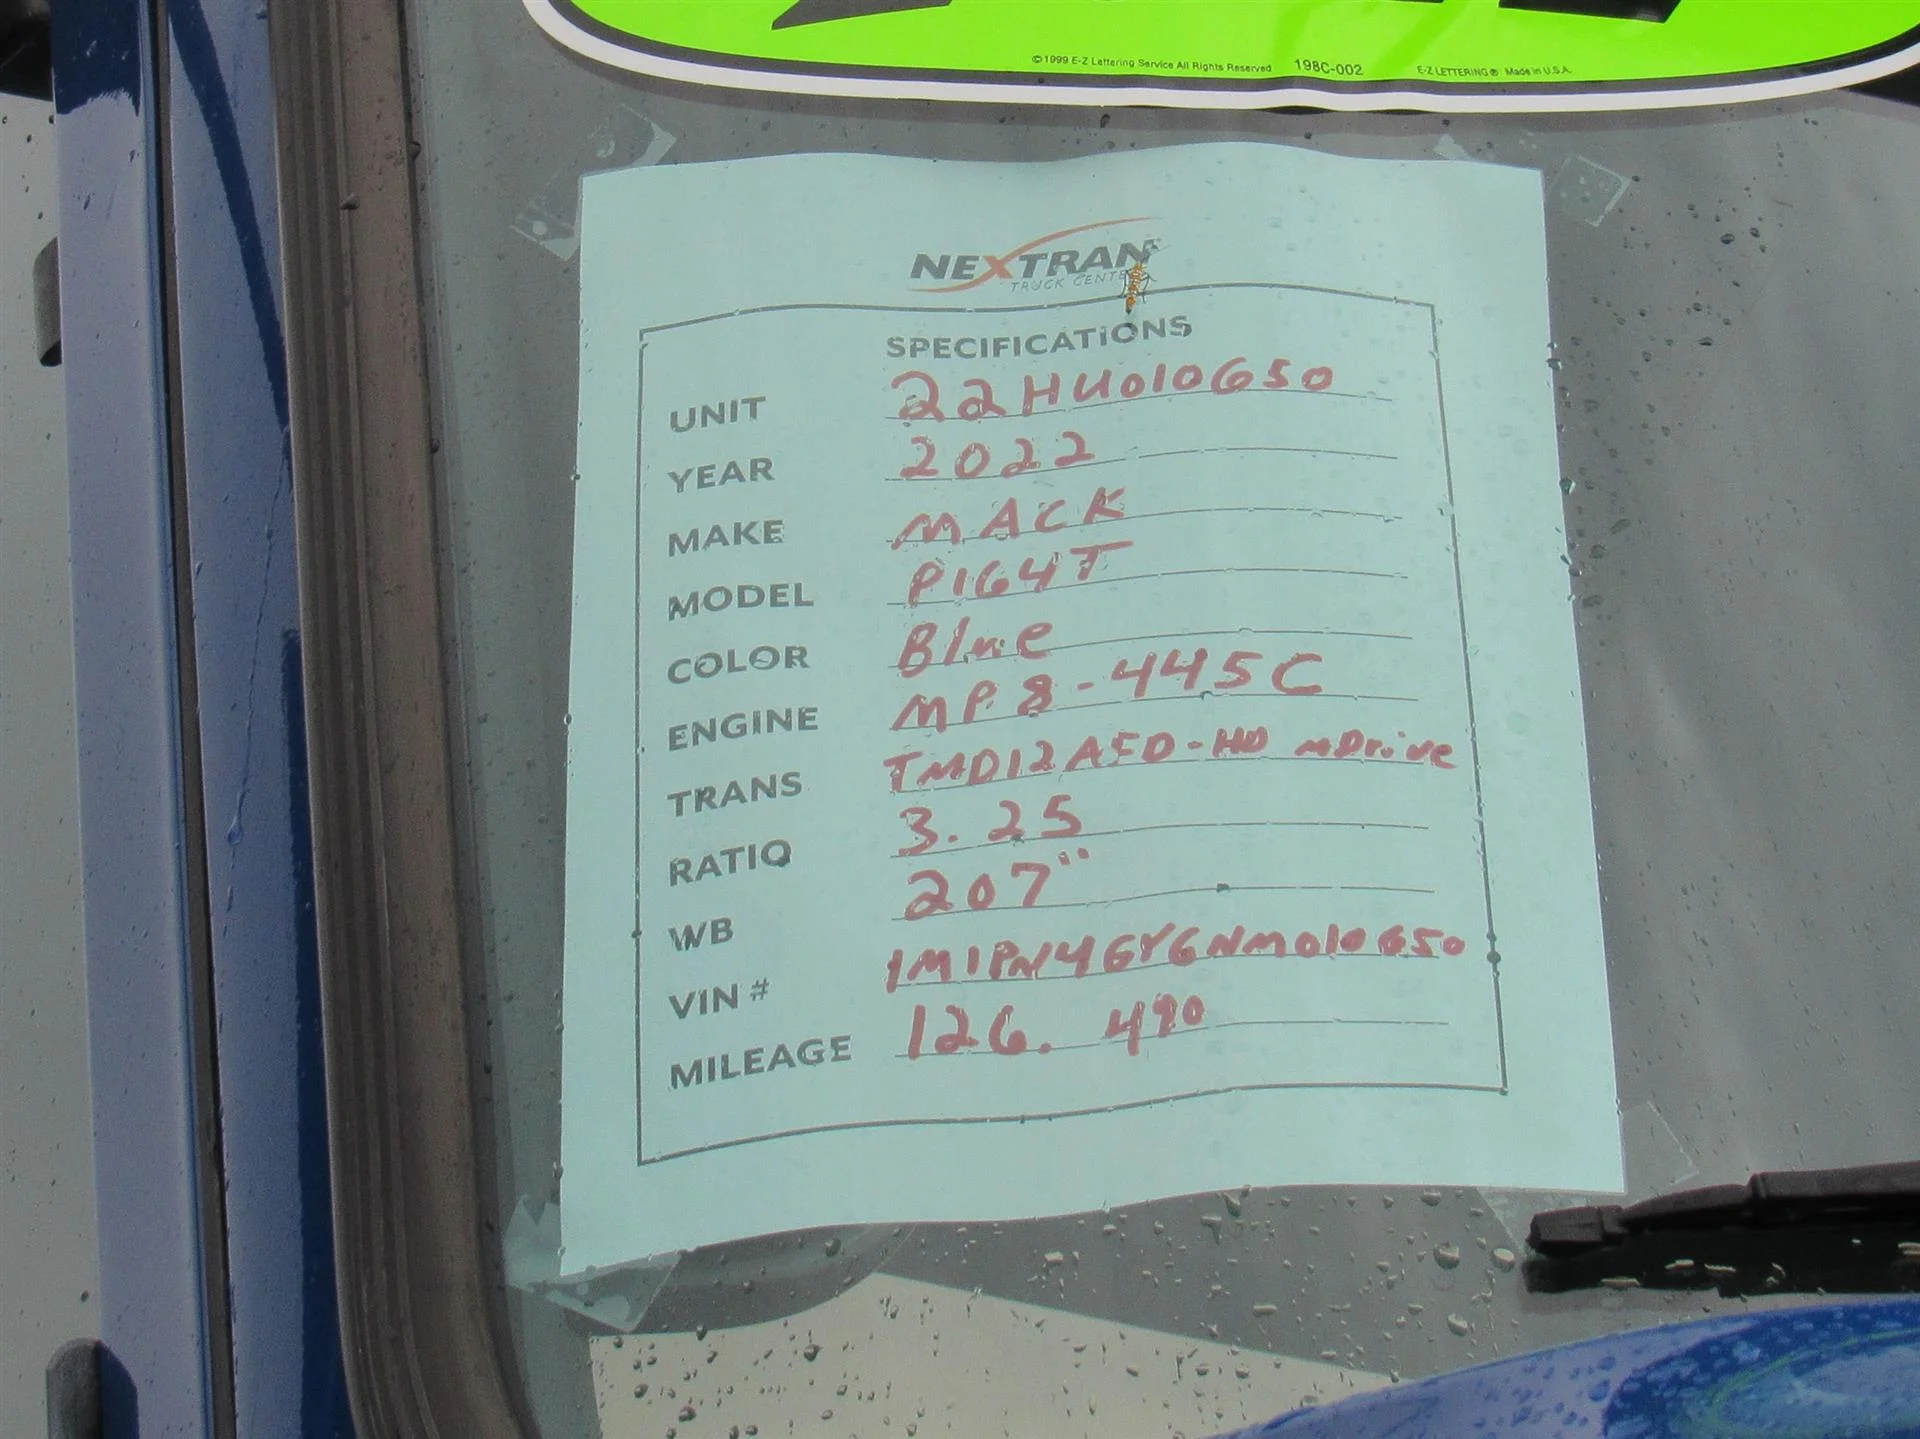 ©1999 E-Z Lettering Service All Rights Reserved 198C-002 E-Z LETTERING® Made in U.S.A.
NEXTRAN
TRUCK CENTE
SPECIFICATIONS
UNIT 22HU010650
YEAR 2022
MAKE MACK
MODEL P164T
COLOR Blue
ENGINE MP8-445C
TRANS TMD12AFD-HD mDrive
RATIO 3.25
WB 207"
VIN # 1M1PN4GY6NM010650
MILEAGE 126.490